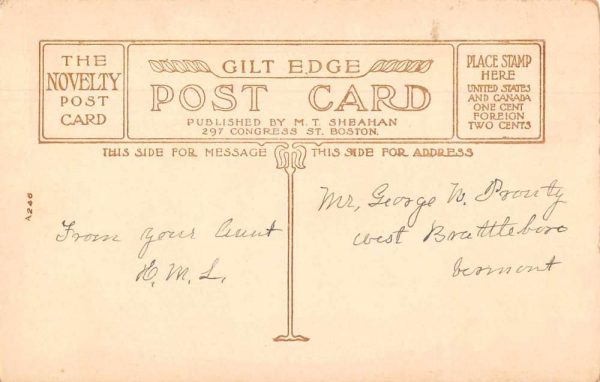 THE
NOVELTY
POST
CARD
GILT EDGE
POST CARD
PUBLISHED BY M. T. SHEAHAN
297 CONGRESS ST. BOSTON.
PLACE STAMP
HERE
UNITED STATES
AND CANADA
ONE CENT
FOREIGN
TWO CENTS
THIS SIDE FOR MESSAGE
THIS SIDE FOR ADDRESS
A246
From your Aunt
H. M. L.
Mr, George W. Prouty
West Brattleboro
Vermont